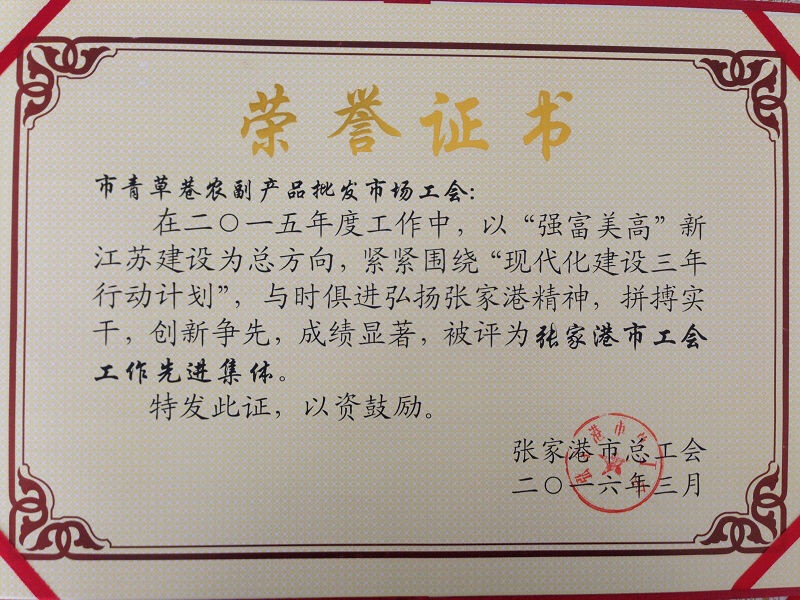 荣誉证书
市青草巷农副产品批发市场工会：
在二〇一五年度工作中，以“强富美高”新
江苏建设为总方向，紧紧围绕“现代化建设三年
行动计划”，与时俱进弘扬张家港精神，拼搏实
干，创新争先，成绩显著，被评为张家港市工会
工作先进集体。
特发此证，以资鼓励。
张家港市总工会
二〇一六年三月